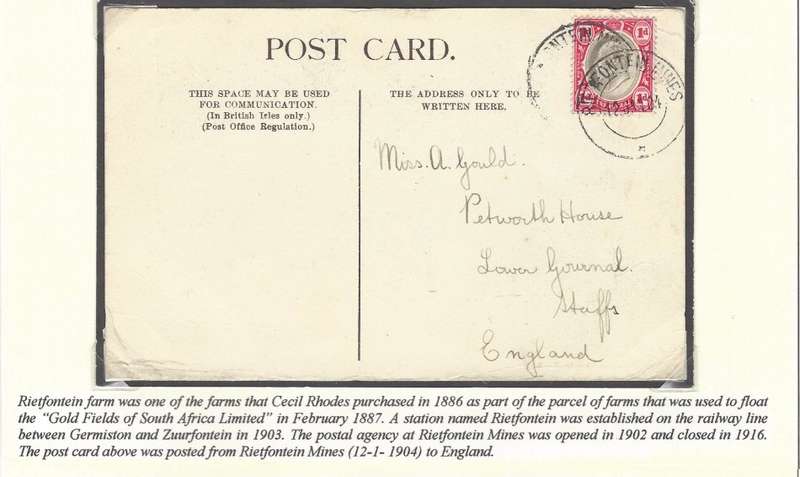 POST CARD.
THIS SPACE MAY BE USED
FOR COMMUNICATION.
(In British Isles only.)
(Post Office Regulation.)
THE ADDRESS ONLY TO BE
WRITTEN HERE.
1d 1d
ONTEIN MINES
Miss. A. Gould.
Petworth House
Lower Gournal.
Staffs
England
Rietfontein farm was one of the farms that Cecil Rhodes purchased in 1886 as part of the parcel of farms that was used to float
the “Gold Fields of South Africa Limited” in February 1887. A station named Rietfontein was established on the railway line
between Germiston and Zuurfontein in 1903. The postal agency at Rietfontein Mines was opened in 1902 and closed in 1916.
The post card above was posted from Rietfontein Mines (12-1- 1904) to England.